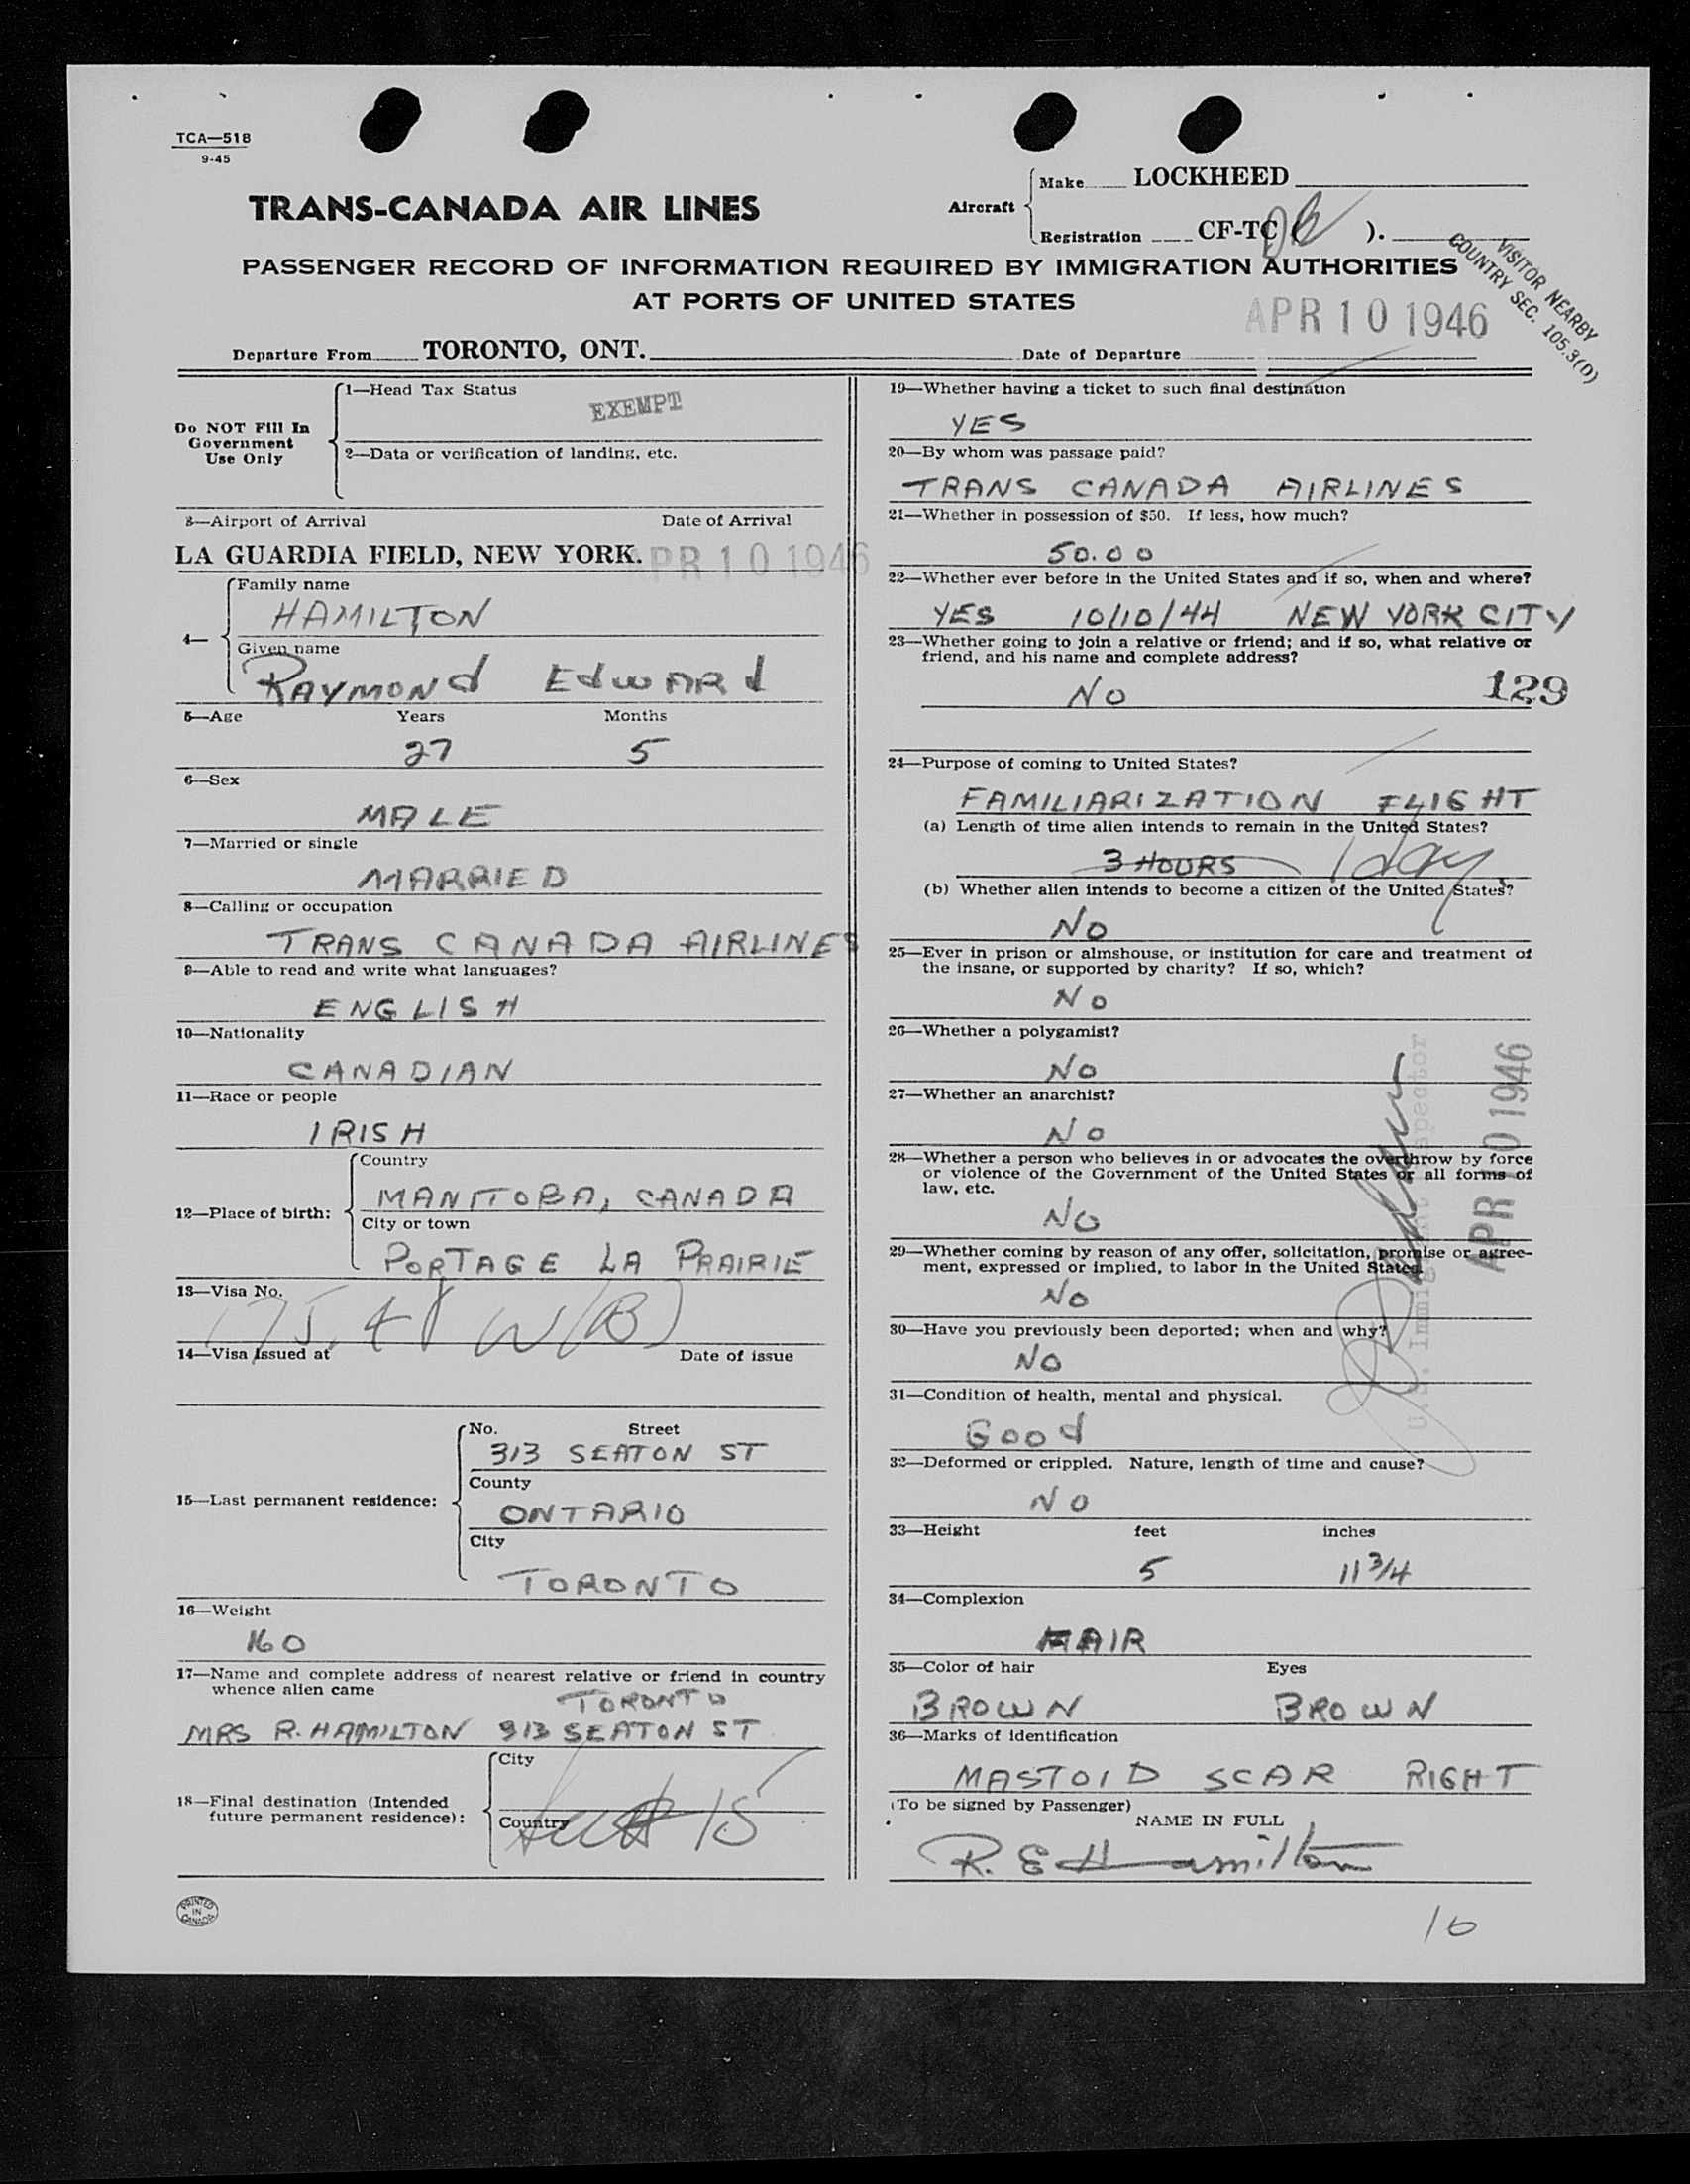 TCA—518
9-45
TRANS-CANADA AIR LINES
Aircraft
Make LOCKHEED
Registration CF-TC ( ).
PASSENGER RECORD OF INFORMATION REQUIRED BY IMMIGRATION AUTHORITIES
AT PORTS OF UNITED STATES
VISITOR NEARBY
COUNTRY SEC. 105.3(D)
APR 10 1946
Departure From TORONTO, ONT. Date of Departure
Do NOT Fill In
Government
Use Only
1—Head Tax Status
EXEMPT
2—Data or verification of landing, etc.
3—Airport of Arrival Date of Arrival
LA GUARDIA FIELD, NEW YORK. APR 10 1946
4—
Family name
HAMILTON
Given name
RAYMONd EdwARd
5—Age Years Months
27 5
6—Sex
MALE
7—Married or single
MARRIED
8—Calling or occupation
TRANS CANADA AIRLINES
9—Able to read and write what languages?
ENGLISH
10—Nationality
CANADIAN
11—Race or people
IRISH
12—Place of birth:
Country
MANITOBA, CANADA
City or town
PORTAGE LA PRAIRIE
13—Visa No.
14—Visa issued at Date of issue
15—Last permanent residence:
No. Street
313 SEATON ST
County
ONTARIO
City
TORONTO
16—Weight
160
17—Name and complete address of nearest relative or friend in country
whence alien came
TORONTO
MRS R. HAMILTON 313 SEATON ST
18—Final destination (Intended
future permanent residence):
City
Country
15
PRINTED
IN
CANADA
19—Whether having a ticket to such final destination
YES
20—By whom was passage paid?
TRANS CANADA AIRLINES
21—Whether in possession of $50. If less, how much?
50.00
22—Whether ever before in the United States and if so, when and where?
YES 10/10/44 NEW YORK CITY
23—Whether going to join a relative or friend; and if so, what relative or
friend, and his name and complete address?
NO
129
24—Purpose of coming to United States?
FAMILIARIZATION FLIGHT
(a) Length of time alien intends to remain in the United States?
3 HOURS 1 day
(b) Whether alien intends to become a citizen of the United States?
NO
25—Ever in prison or almshouse, or institution for care and treatment of
the insane, or supported by charity? If so, which?
NO
26—Whether a polygamist?
NO
27—Whether an anarchist?
NO
28—Whether a person who believes in or advocates the overthrow by force
or violence of the Government of the United States or all forms of
law, etc.
NO
29—Whether coming by reason of any offer, solicitation, promise or agree-
ment, expressed or implied, to labor in the United States.
NO
30—Have you previously been deported; when and why?
NO
APR 10 1946
U.S. Immigrant Inspector
31—Condition of health, mental and physical.
Good
32—Deformed or crippled. Nature, length of time and cause?
NO
33—Height feet inches
5 11 3/4
34—Complexion
FAIR
35—Color of hair Eyes
BROWN BROWN
36—Marks of identification
MASTOID SCAR RIGHT
(To be signed by Passenger)
NAME IN FULL
R. E Hamilton
10